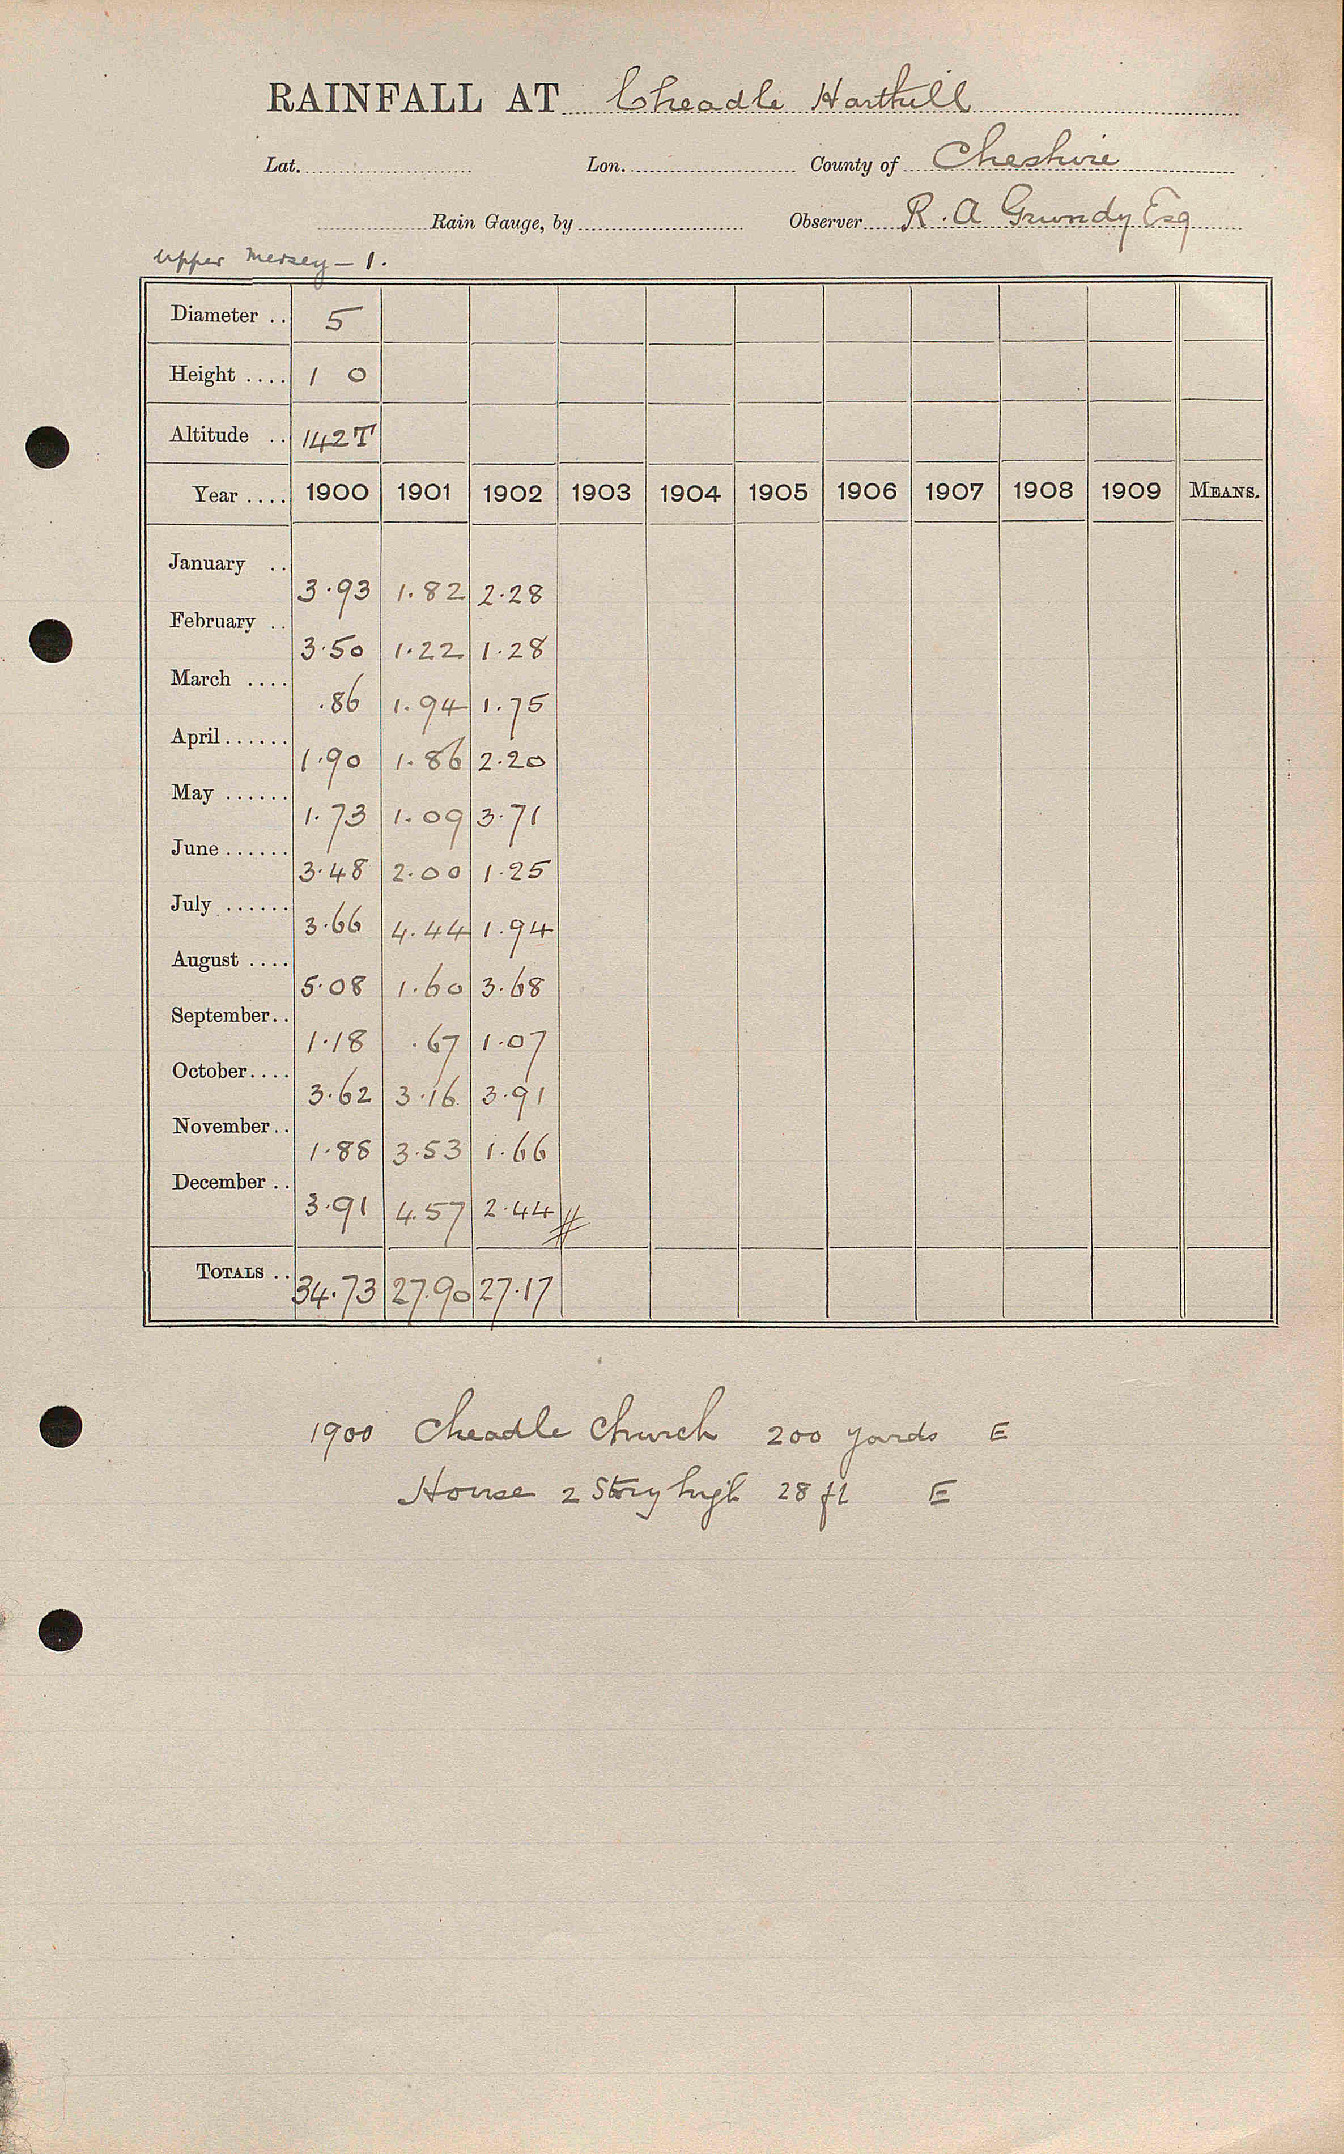 RAINFALL AT Cheadle Harthill
Lat. Lon. County of Cheshire
Rain Gauge, by Observer R. A Grundy Esq
Upper Mersey - 1.
Diameter .. 5
Height .... 1 0
Altitude .. 142T
Year .... 1900 1901 1902 1903 1904 1905 1906 1907 1908 1909 MEANS.
January .. 3.93 1.82 2.28
February .. 3.50 1.22 1.28
March .... .86 1.94 1.75
April...... 1.90 1.86 2.20
May ...... 1.73 1.09 3.71
June...... 3.48 2.00 1.25
July ...... 3.66 4.44 1.94
August .... 5.08 1.60 3.68
September.. 1.18 .67 1.07
October.... 3.62 3.16 3.91
November.. 1.88 3.53 1.66
December .. 3.91 4.57 2.44
TOTALS .. 34.73 27.90 27.17
1900 Cheadle Church 200 yards E
House 2 Story high 28 ft E